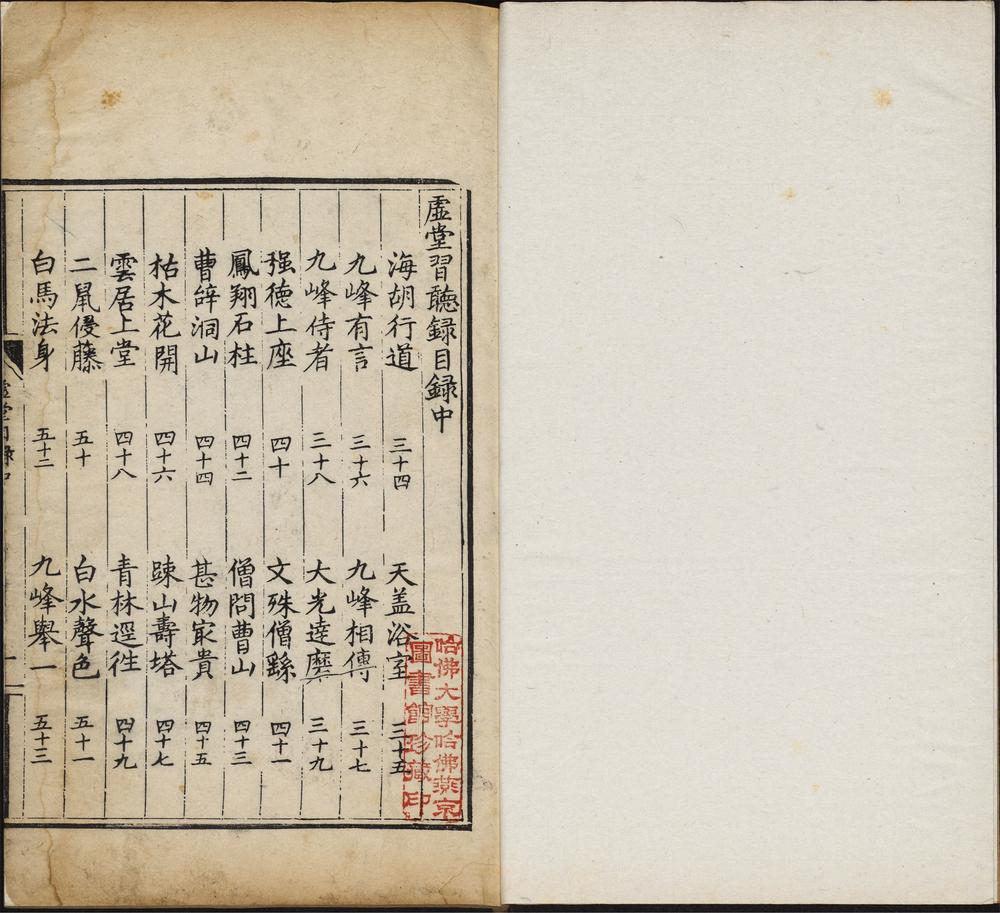 虛堂習聽録目録中
海胡行道 三十四 天盖浴室 三十五
九峰有言 三十六 九峰相傳 三十七
九峰侍者 三十八 大光達磨 三十九
强德上座 四十 文殊僧繇 四十一
鳳翔石柱 四十二 僧問曹山 四十三
曹辝洞山 四十四 甚物㝡貴 四十五
枯木花開 四十六 踈山壽塔 四十七
雲居上堂 四十八 青林逕徃 四十九
二鼠侵藤 五十 白水聲色 五十一
白馬法身 五十二 九峰舉一 五十三
哈佛大學哈佛燕京
圖書館珍藏印